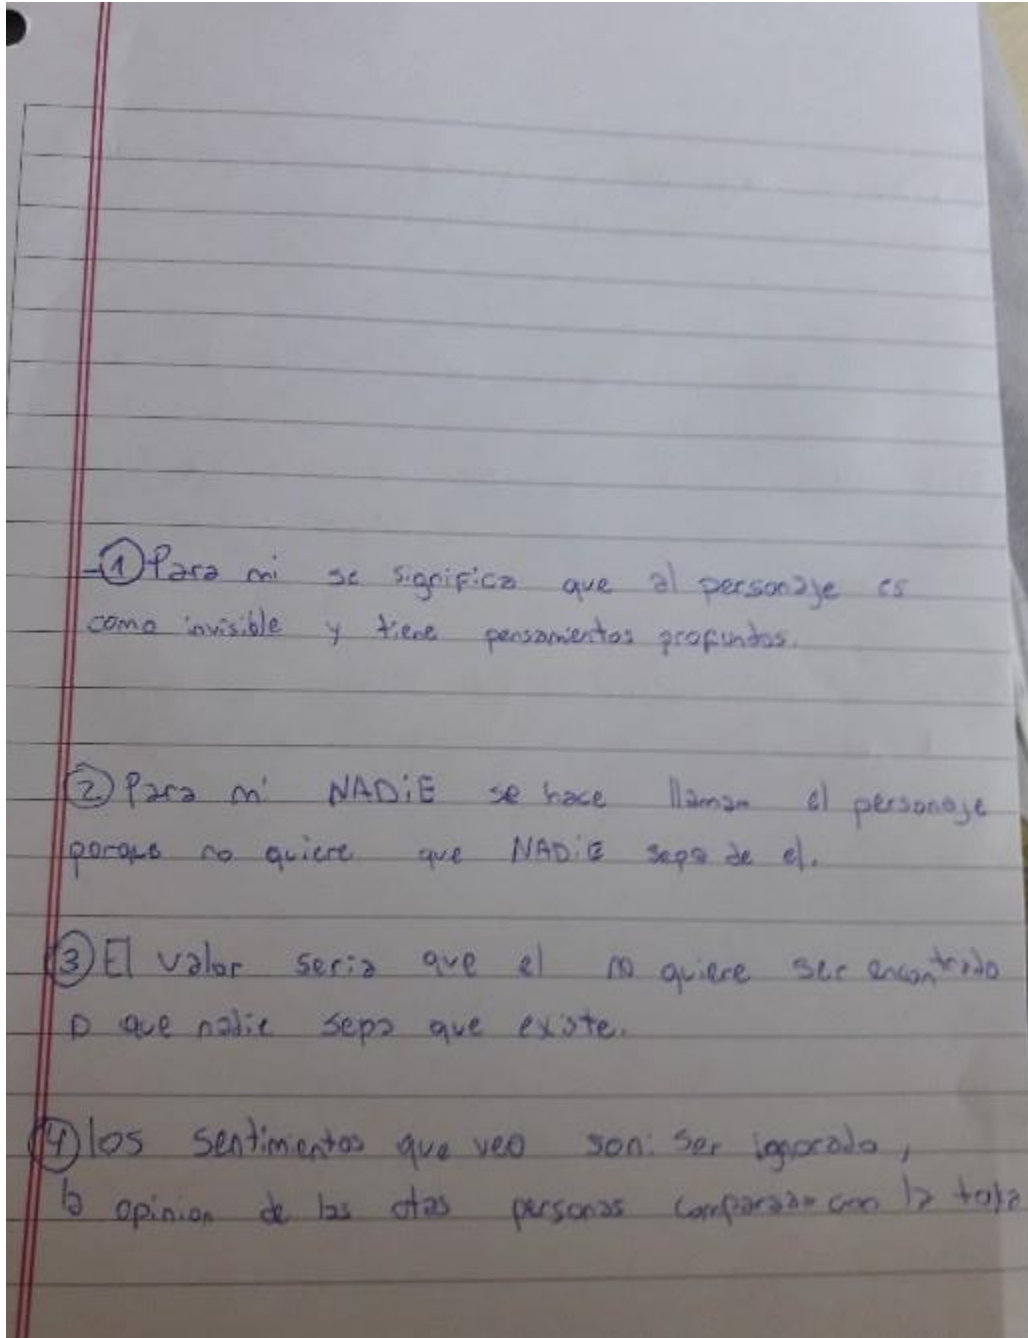 1 Para mi se significa que al personaje es
como invisible y tiene pensamientos profundos.
2 Para mi NADiE se hace llaman el personaje
porque no quiere que NADiE sepa de el.
3 El valor seria que el no quiere ser encontrado
o que nadie sepa que existe.
4 los sentimientos que veo son: Ser ignorado,
la opinion de las otas personas comparada con la